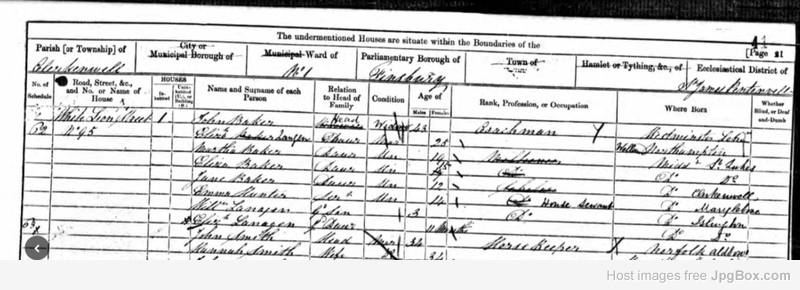 The undermentioned Houses are situate within the Boundaries of the
41
[Page 21
Parish [or Township] of
City or Municipal Borough of
Municipal Ward of
Parliamentary Borough of
Town of
Hamlet or Tything, &c., of
Ecclesiastical District of
Clerkenwell
No 1
Finsbury
St James Clerkenwell
No. of Schedule
Road, Street, &c., and No. or Name of House
HOUSES
Inhabited
Uninhabited (U.), or Building (B.)
Name and Surname of each Person
Relation to Head of Family
Condition
Age of
Males
Females
Rank, Profession, or Occupation
Where Born
Whether Blind, or Deaf-and-Dumb
White Lion Street 1 John Baker Head 43 Coachman
62 No 95 Eliza Daur 25 Northampton
Martha Baker Daur Un 19 St Lukes
Eliza Baker Daur Un 15 Do Do
Jane Baker Daur Un 12 Scholar Do Clerkenwell
Emma Hunter Un 14 House Servant Do Marylebone
Lanagan G Son 3 Do Islington
Lanagan G Daur 11 Months Do Do
63 John Smith Head Mar 34 Horse Keeper Norfolk
Hannah Smith Wife 34
Host images free JpgBox.com